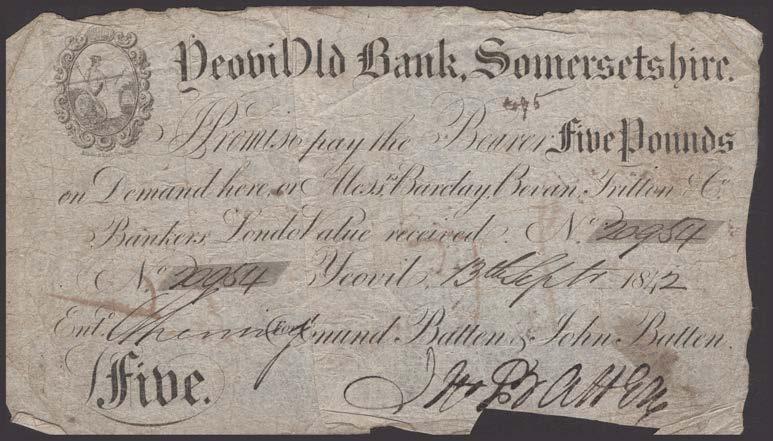 YeovilOld Bank, Somersetshire.
I Promise pay the Bearer Five Pounds
on Demand here, or Mess.rs Barclay, Bevan, Tritton & Co.
Bankers, Londo Value received. No. 20954
No. 20954 Yeovil, 13th Septr 1842
Ent.d mund Batten & John Batten.
Five. Jno Batten